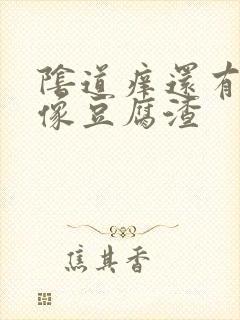 陰道痒還有
像豆腐渣
焦其香